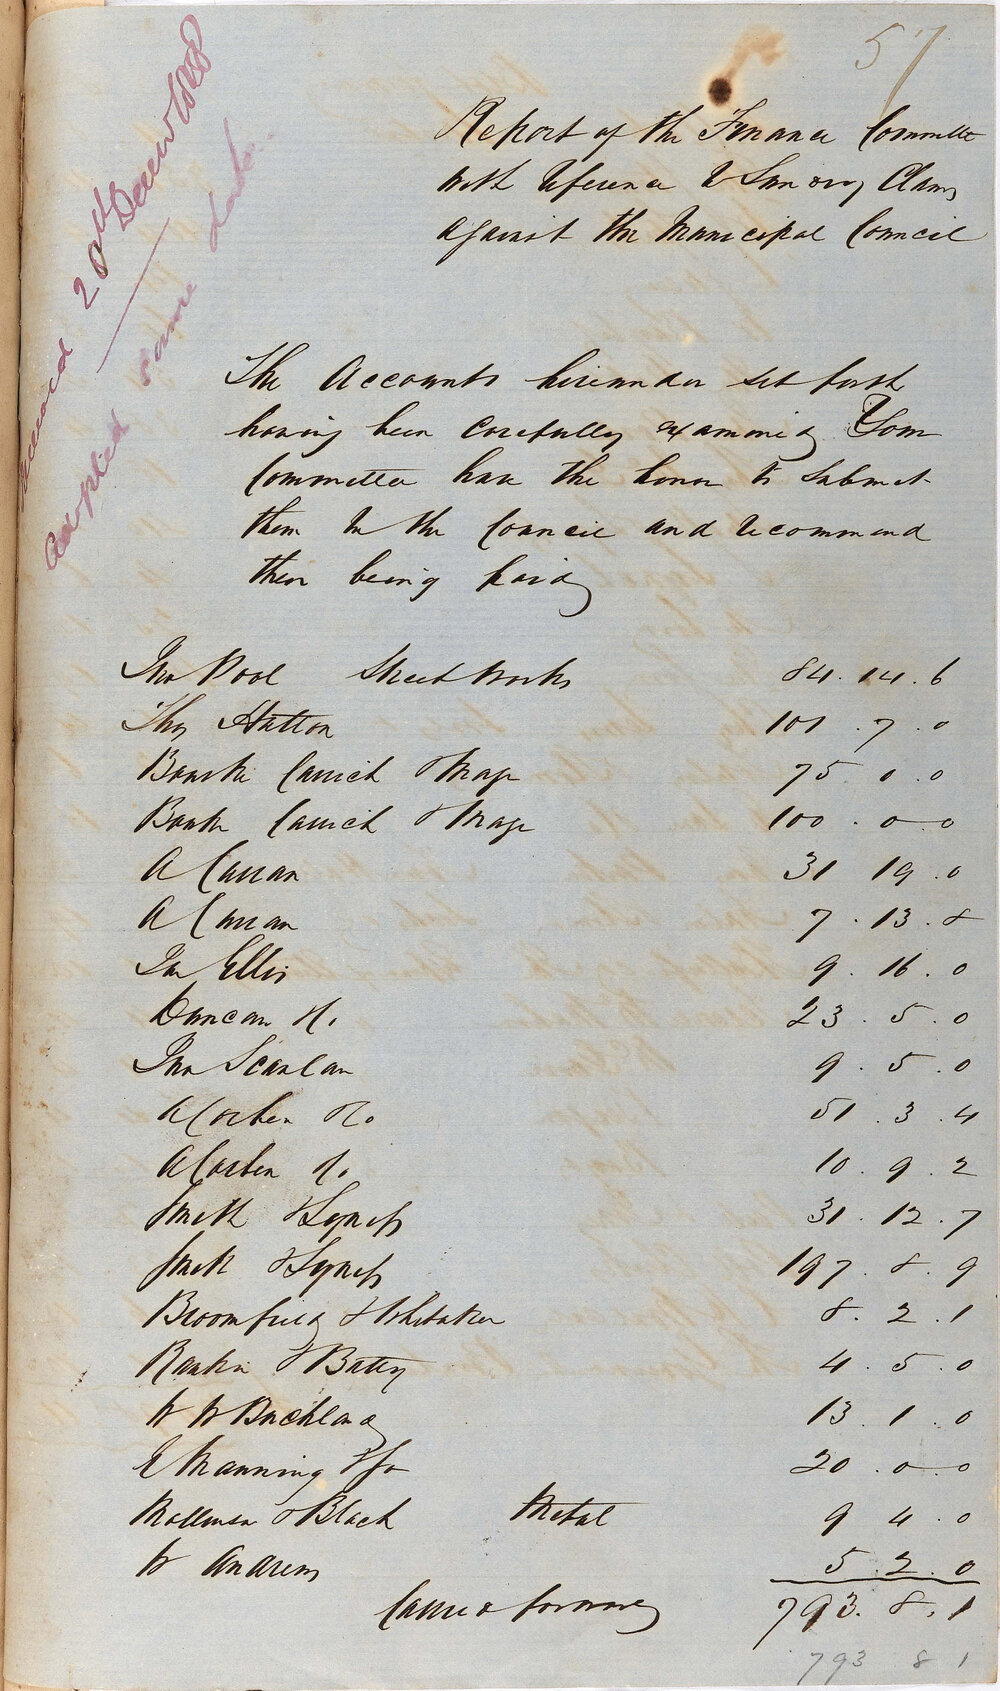 57
Report of the Finance Committee
with reference to Sundry Claims
against the Municipal Council
20th Decem 1858
Adopted same date
The Accounts hereunder set forth
having been carefully examined Your
Committee have the honor to submit
them to the Council and recommend
their being paid
Jno Pool Street Works 84. 14. 6
Thos Hatton 101. 7. 0
Bourke Carrick & Mage 75. 0. 0
Bourke Carrick & Mage 100. 0. 0
A Curran 31 19. 0
A Curran 7. 13. 8
Jas Ellis 9. 16. 0
Duncan 23. 5. 0
Jno Scanlan 9. 5. 0
A Corben 51. 3. 4
A Corben 10. 9. 2
Smith & Lyness 31. 12. 7
Smith & Lyness 197. 8. 9
Broomfield & Whitaker 8. 2. 1
Rankin & Batty 4. 5. 0
W W Buckland 13. 1. 0
E Manning & Jno 20. 0. 0
Mollison & Black Metal 9 4. 0
W Andrews 5. 2. 0
Carried forward 793. 8. 1
793 8 1